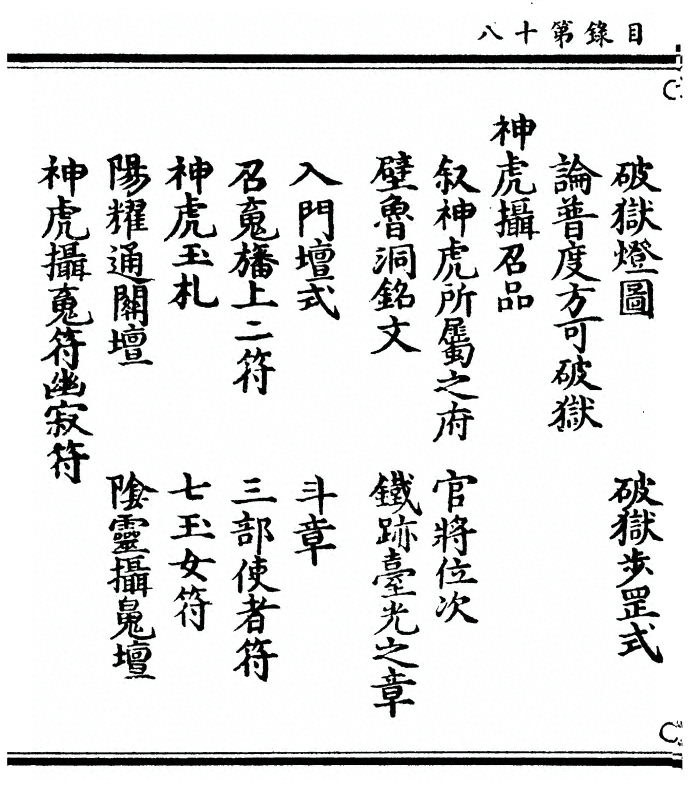 目錄第十八
破獄燈圖 破獄步罡式
論普度方可破獄
神虎攝召品
叙神虎所屬之府 官將位次
壁魯洞銘文 鐵跡臺光之章
入門壇式 斗章
召䰟旛上二符 三部使者符
神虎玉札 七玉女符
陽耀通關壇 陰靈攝䰟壇
神虎攝䰟符幽寂符